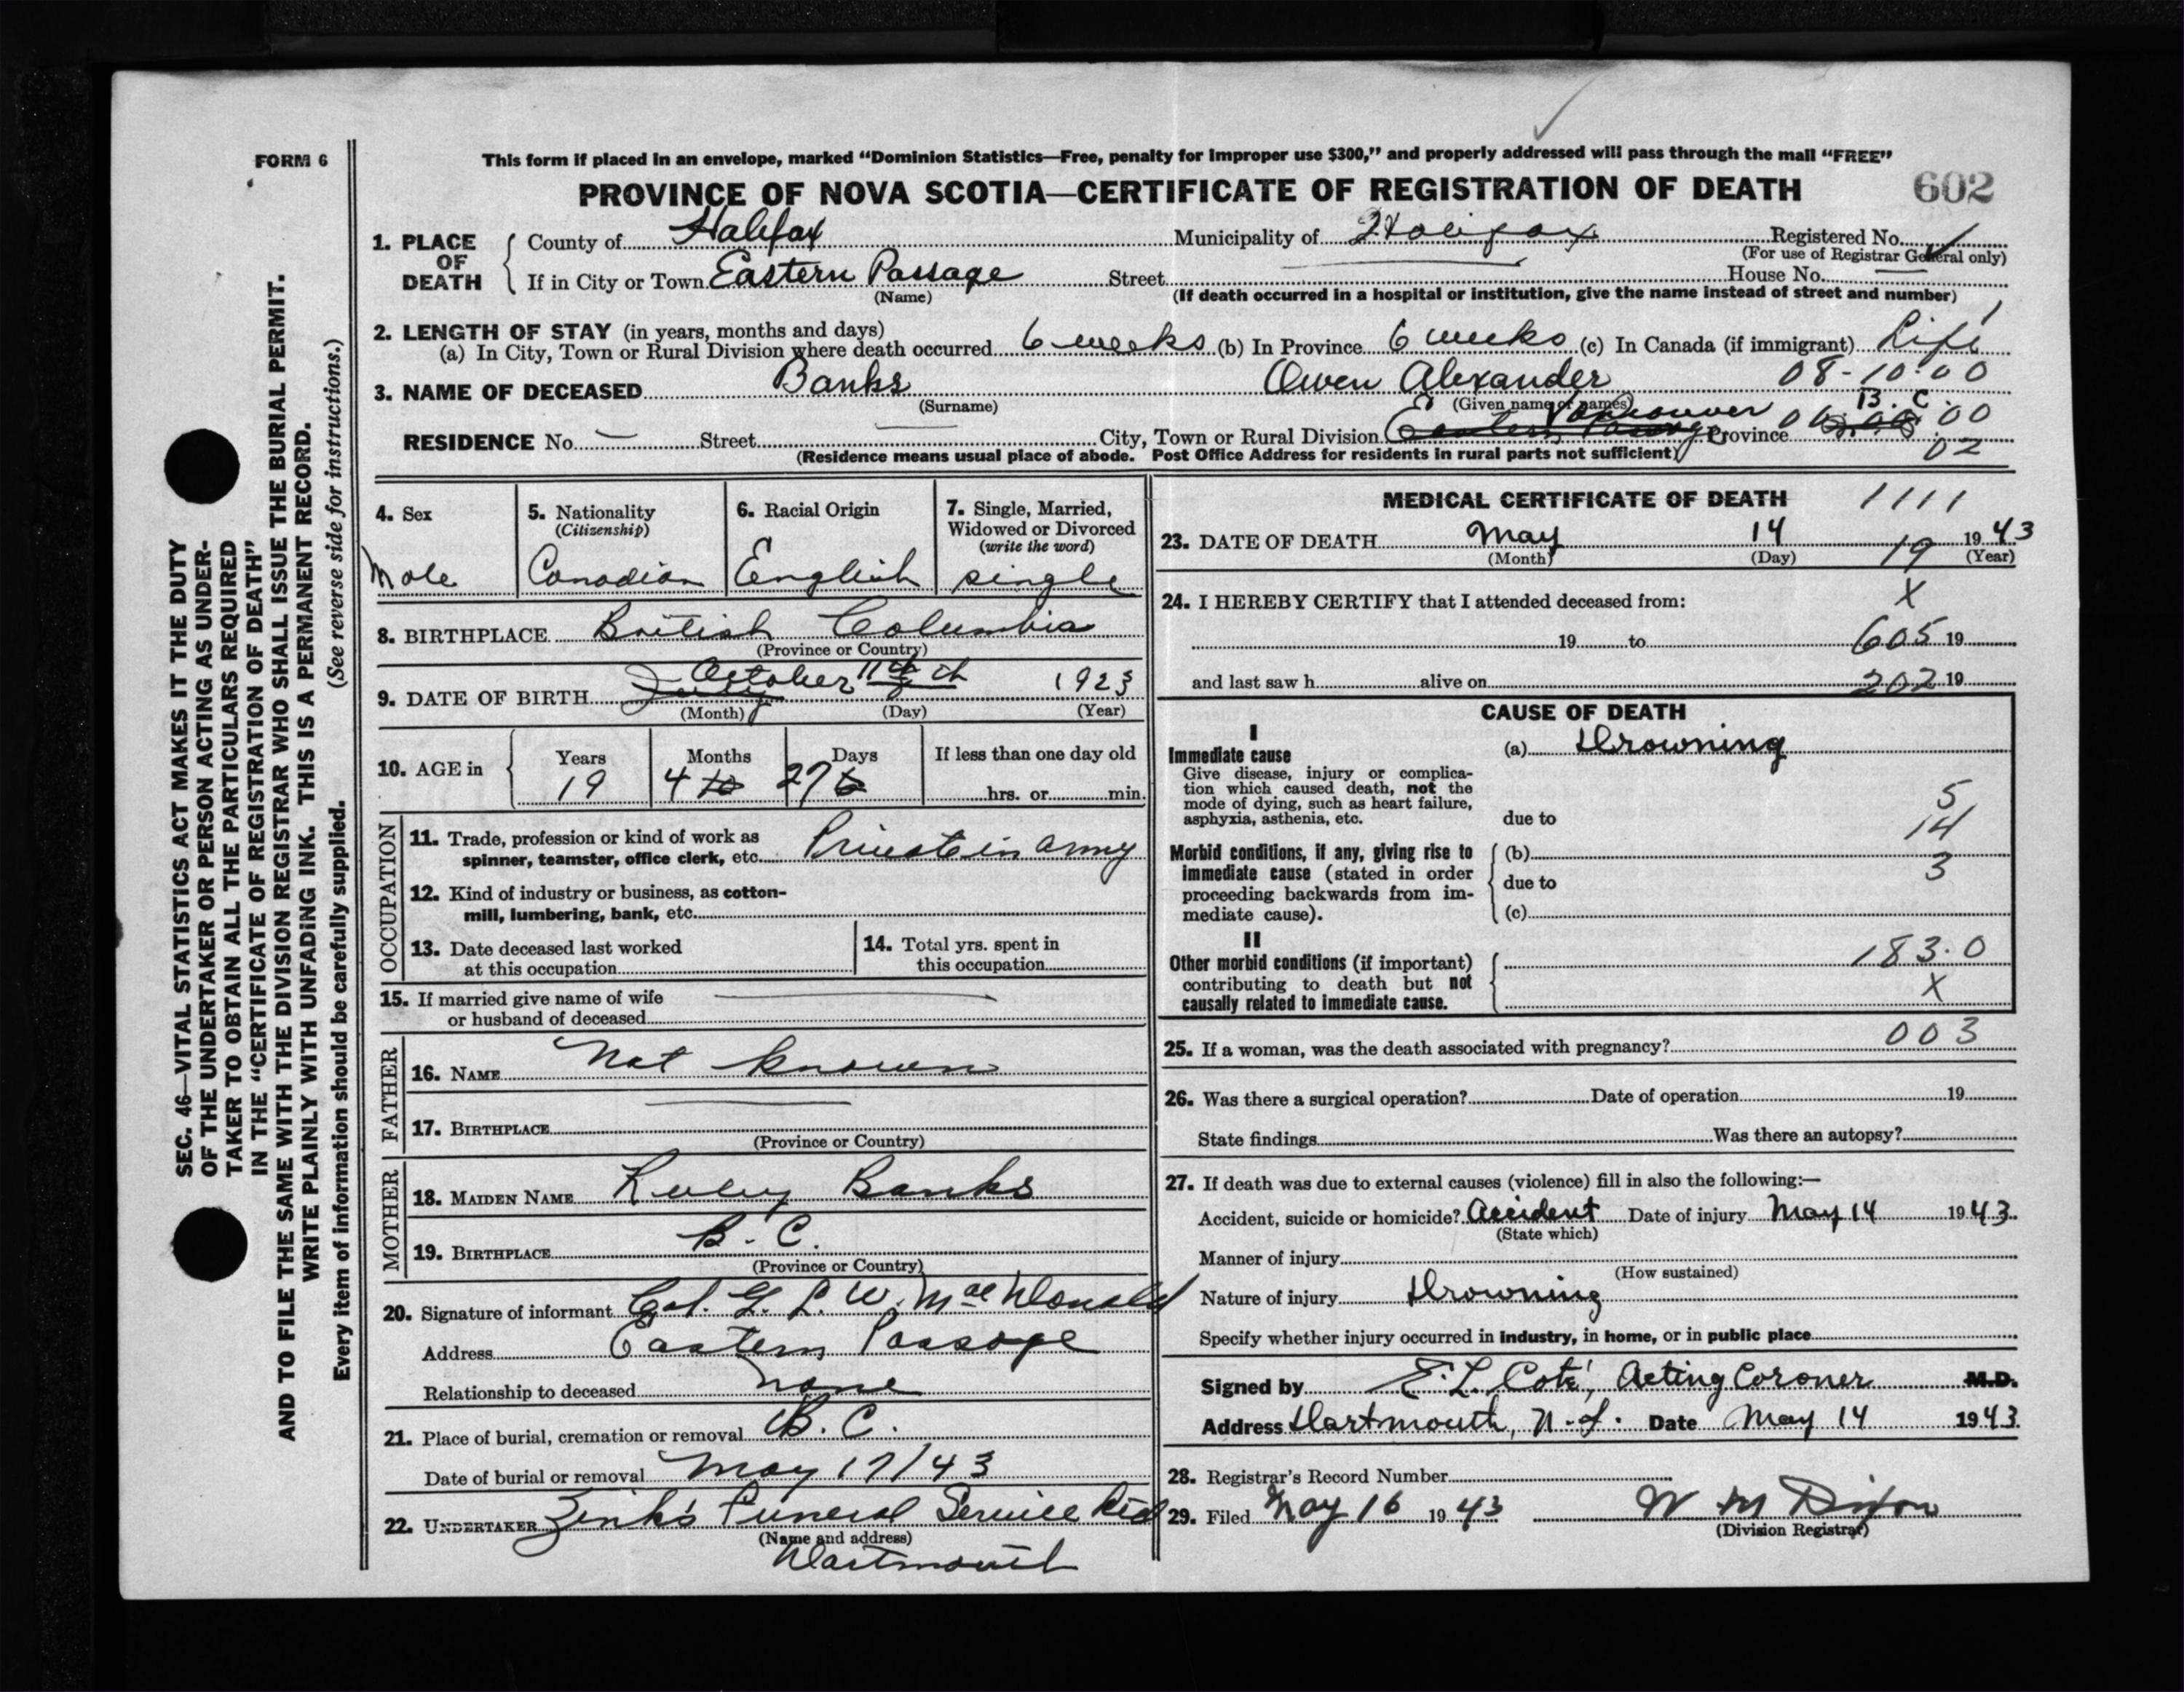 FORM 6
This form if placed in an envelope, marked “Dominion Statistics—Free, penalty for improper use $300,” and properly addressed will pass through the mail “FREE”
PROVINCE OF NOVA SCOTIA—CERTIFICATE OF REGISTRATION OF DEATH 602
1. PLACE OF DEATH County of Halifax Municipality of Halifax Registered No.
(For use of Registrar General only)
If in City or Town Eastern Passage Street House No.
(Name) (If death occurred in a hospital or institution, give the name instead of street and number)
2. LENGTH OF STAY (in years, months and days)
(a) In City, Town or Rural Division where death occurred 6 weeks (b) In Province 6 weeks (c) In Canada (if immigrant) Life
3. NAME OF DECEASED Banks Owen Alexander 08-10.00
(Surname) (Given name or names)
Vancouver B.C.
RESIDENCE No. — Street — City, Town or Rural Division Eastern Passage Province 00
(Residence means usual place of abode. Post Office Address for residents in rural parts not sufficient) 02
4. Sex
Male
5. Nationality
(Citizenship)
Canadian
6. Racial Origin
English
7. Single, Married,
Widowed or Divorced
(write the word)
single
8. BIRTHPLACE British Columbia
(Province or Country)
9. DATE OF BIRTH July October 11th 1923
(Month) (Day) (Year)
10. AGE in Years Months Days If less than one day old
19 4 27 hrs. or min.
OCCUPATION
11. Trade, profession or kind of work as
spinner, teamster, office clerk, etc. Private in army
12. Kind of industry or business, as cotton-
mill, lumbering, bank, etc.
13. Date deceased last worked
at this occupation
14. Total yrs. spent in
this occupation
15. If married give name of wife
or husband of deceased
FATHER
16. NAME Not known
17. BIRTHPLACE
(Province or Country)
MOTHER
18. MAIDEN NAME Ruby Banks
19. BIRTHPLACE B.C.
(Province or Country)
20. Signature of informant Col. G. L. W. MacDonald
Address Eastern Passage
Relationship to deceased none
21. Place of burial, cremation or removal B.C.
Date of burial or removal May 17/43
22. UNDERTAKER Zink's Funeral Service Ltd
(Name and address)
Dartmouth
MEDICAL CERTIFICATE OF DEATH 1111
23. DATE OF DEATH May 14 1943
(Month) (Day) 19 (Year)
24. I HEREBY CERTIFY that I attended deceased from: X
19 to 605 19
and last saw h alive on 202 19
CAUSE OF DEATH
I
Immediate cause (a) Drowning
Give disease, injury or complica-
tion which caused death, not the
mode of dying, such as heart failure,
asphyxia, asthenia, etc. due to
5
14
Morbid conditions, if any, giving rise to (b)
3
immediate cause (stated in order
proceeding backwards from im- due to
mediate cause). (c)
II
Other morbid conditions (if important) 183.0
contributing to death but not
causally related to immediate cause. X
25. If a woman, was the death associated with pregnancy? 003
26. Was there a surgical operation? Date of operation 19
State findings Was there an autopsy?
27. If death was due to external causes (violence) fill in also the following:—
Accident, suicide or homicide? Accident Date of injury May 14 1943
(State which)
Manner of injury
(How sustained)
Nature of injury Drowning
Specify whether injury occurred in industry, in home, or in public place
Signed by E. L. Coté, Acting Coroner M.D.
Address Dartmouth, N.S. Date May 14 1943
28. Registrar's Record Number
29. Filed May 16 1943 W M Dixon
(Division Registrar)
SEC. 46—VITAL STATISTICS ACT MAKES IT THE DUTY
OF THE UNDERTAKER OR PERSON ACTING AS UNDER-
TAKER TO OBTAIN ALL THE PARTICULARS REQUIRED
IN THE “CERTIFICATE OF REGISTRATION OF DEATH”
AND TO FILE THE SAME WITH THE DIVISION REGISTRAR WHO SHALL ISSUE THE BURIAL PERMIT.
WRITE PLAINLY WITH UNFADING INK. THIS IS A PERMANENT RECORD.
Every item of information should be carefully supplied. (See reverse side for instructions.)